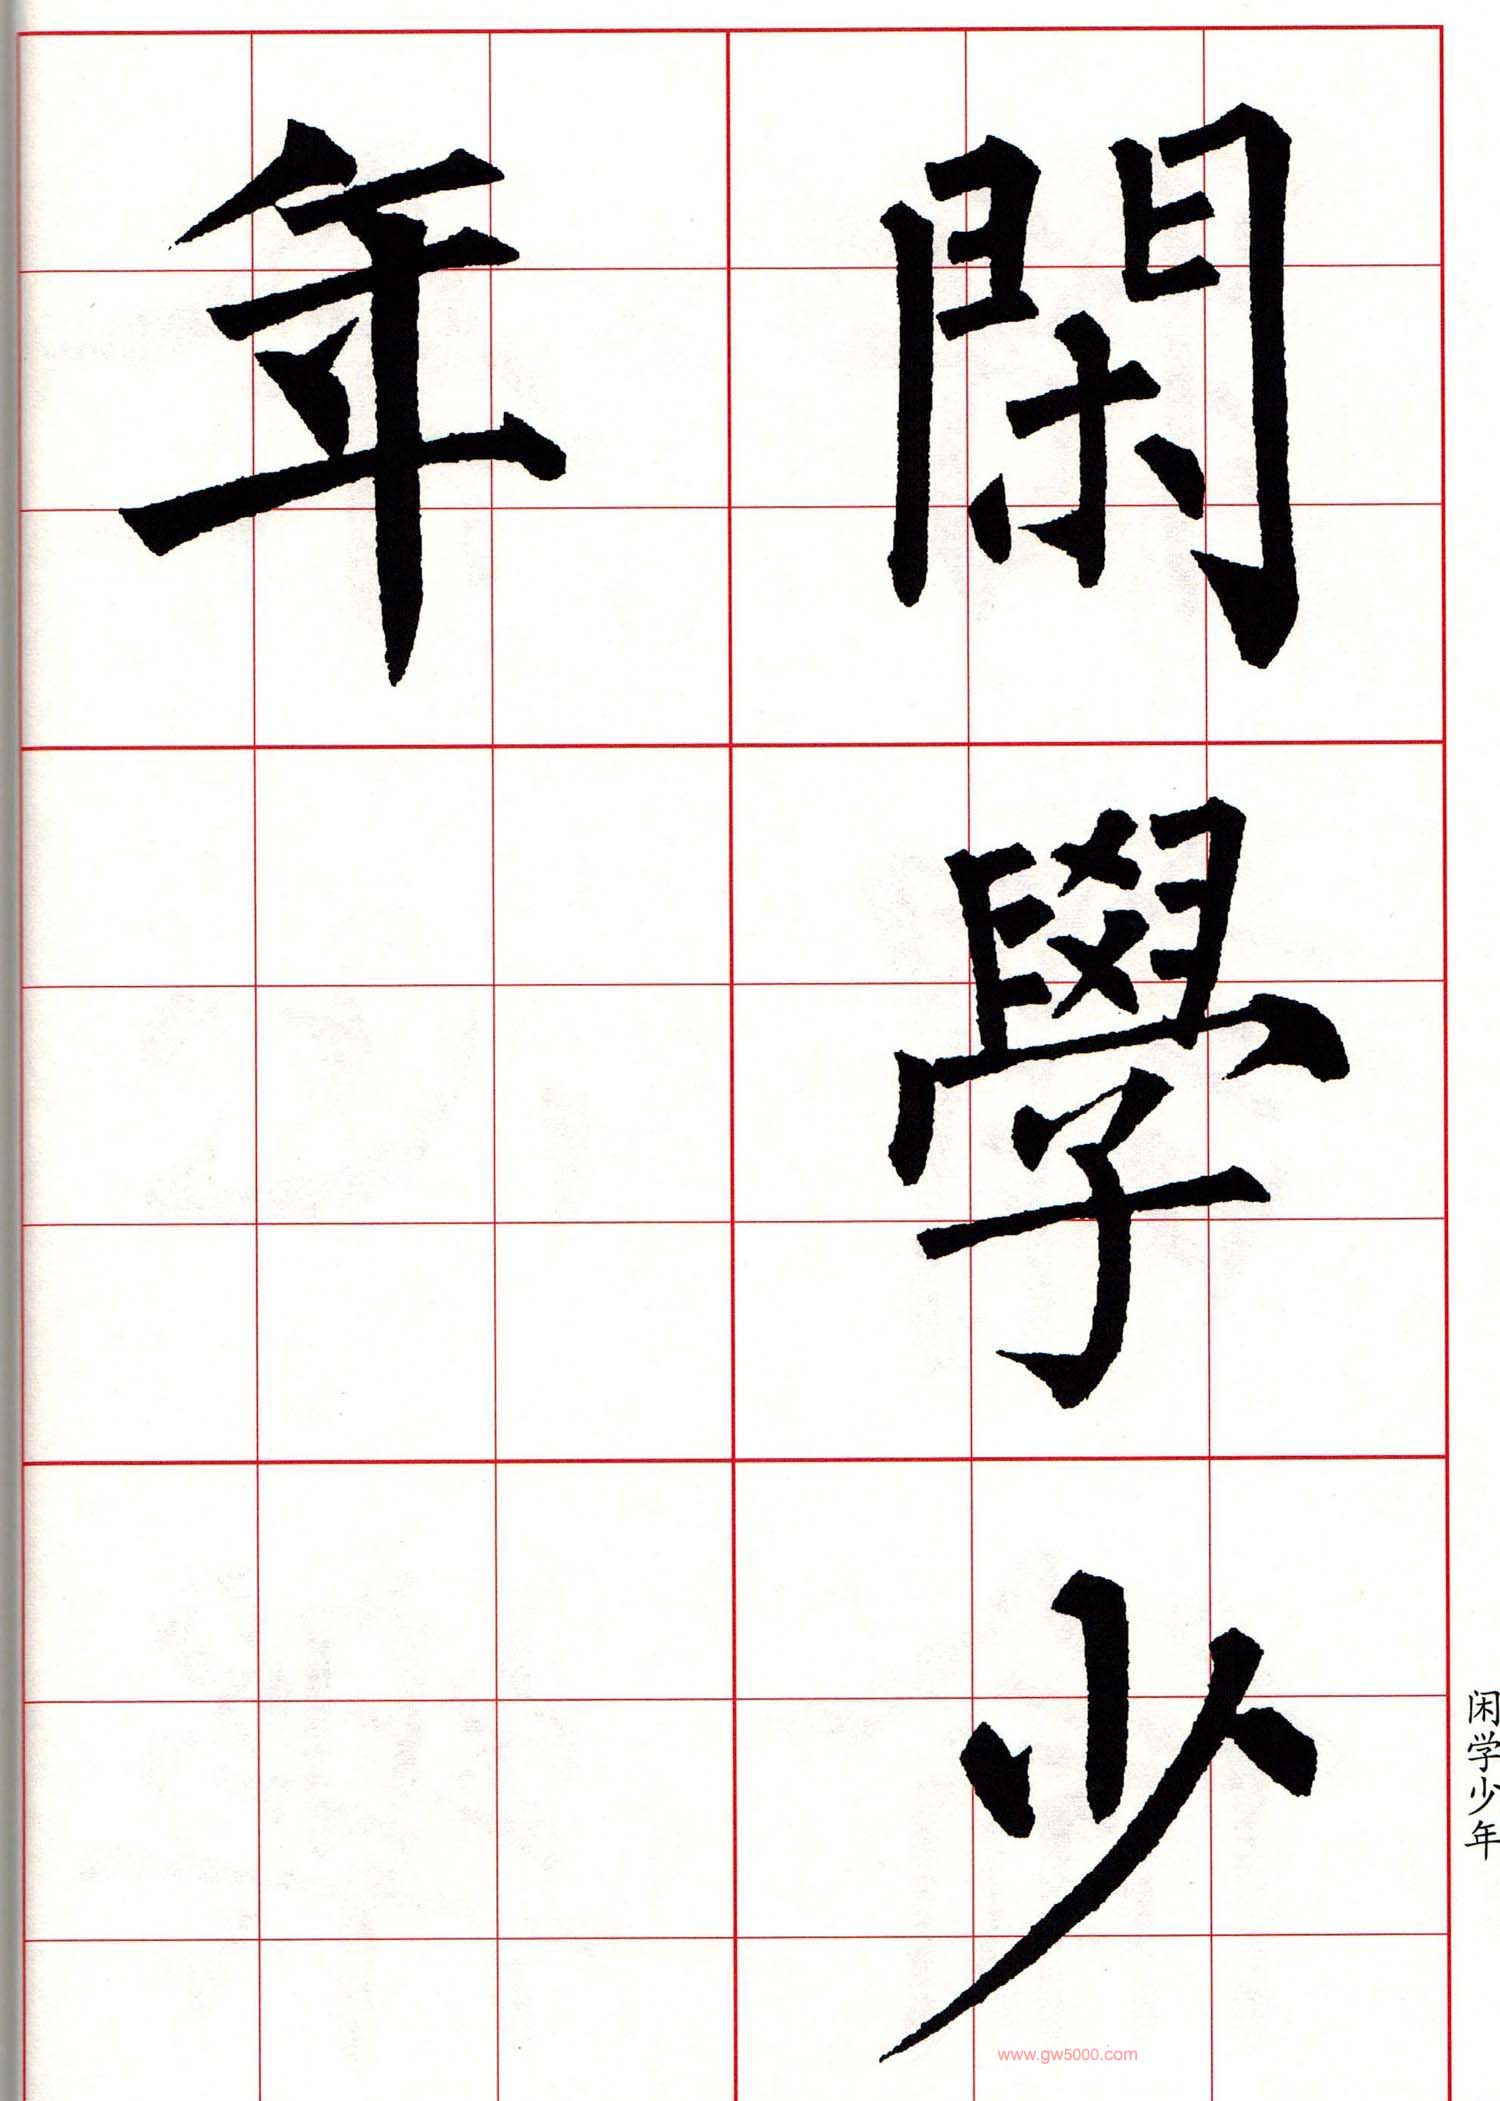 閑學少
年
闲学少年
www.gw5000.com